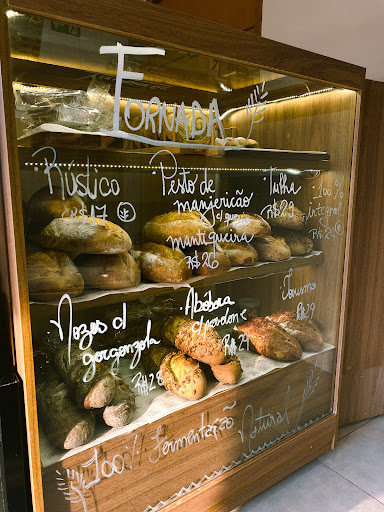 Fornada
Rústico
R$17
Pesto de
manjericão
c/ queijo
mantigueira
R$26
Tulha
R$29
100%
integral
R$
Nozes c/
gorgonzola
R$28
Abóbora
R$29
Torresmo
R$29
100% Fermentação Natural